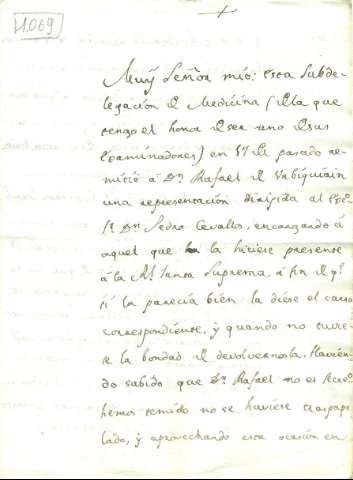 1.069
+
Muy Señor mio: esta Subde-
legacion de Medicina (de la que
tengo el honor de ser uno de sus
Examinadores) en 17 de pasado re-
mitió á Dn. Rafael de
una representacion dirigida al Exmo
Sr Dn Pedro Cevallos, encargando á
aquel que la hiciese presente
á la Rl. Junta Suprema, á fin de qe.
si la parecia bien la diese el curso
correspondiente, y quando no tuvie-
se la bondad de devolvernosla. Havien-
do sabido que Dn. Rafael no es Secreo.
hemos temido no se haviese traspape-
lado, y aprovechando esta ocasión en